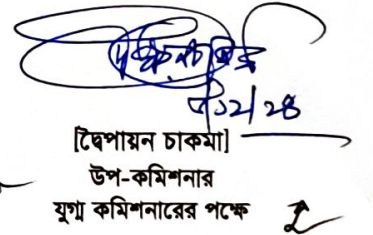 [দ্বৈপায়ন চাকমা]
উপ-কমিশনার
যুগ্ম কমিশনারের পক্ষে